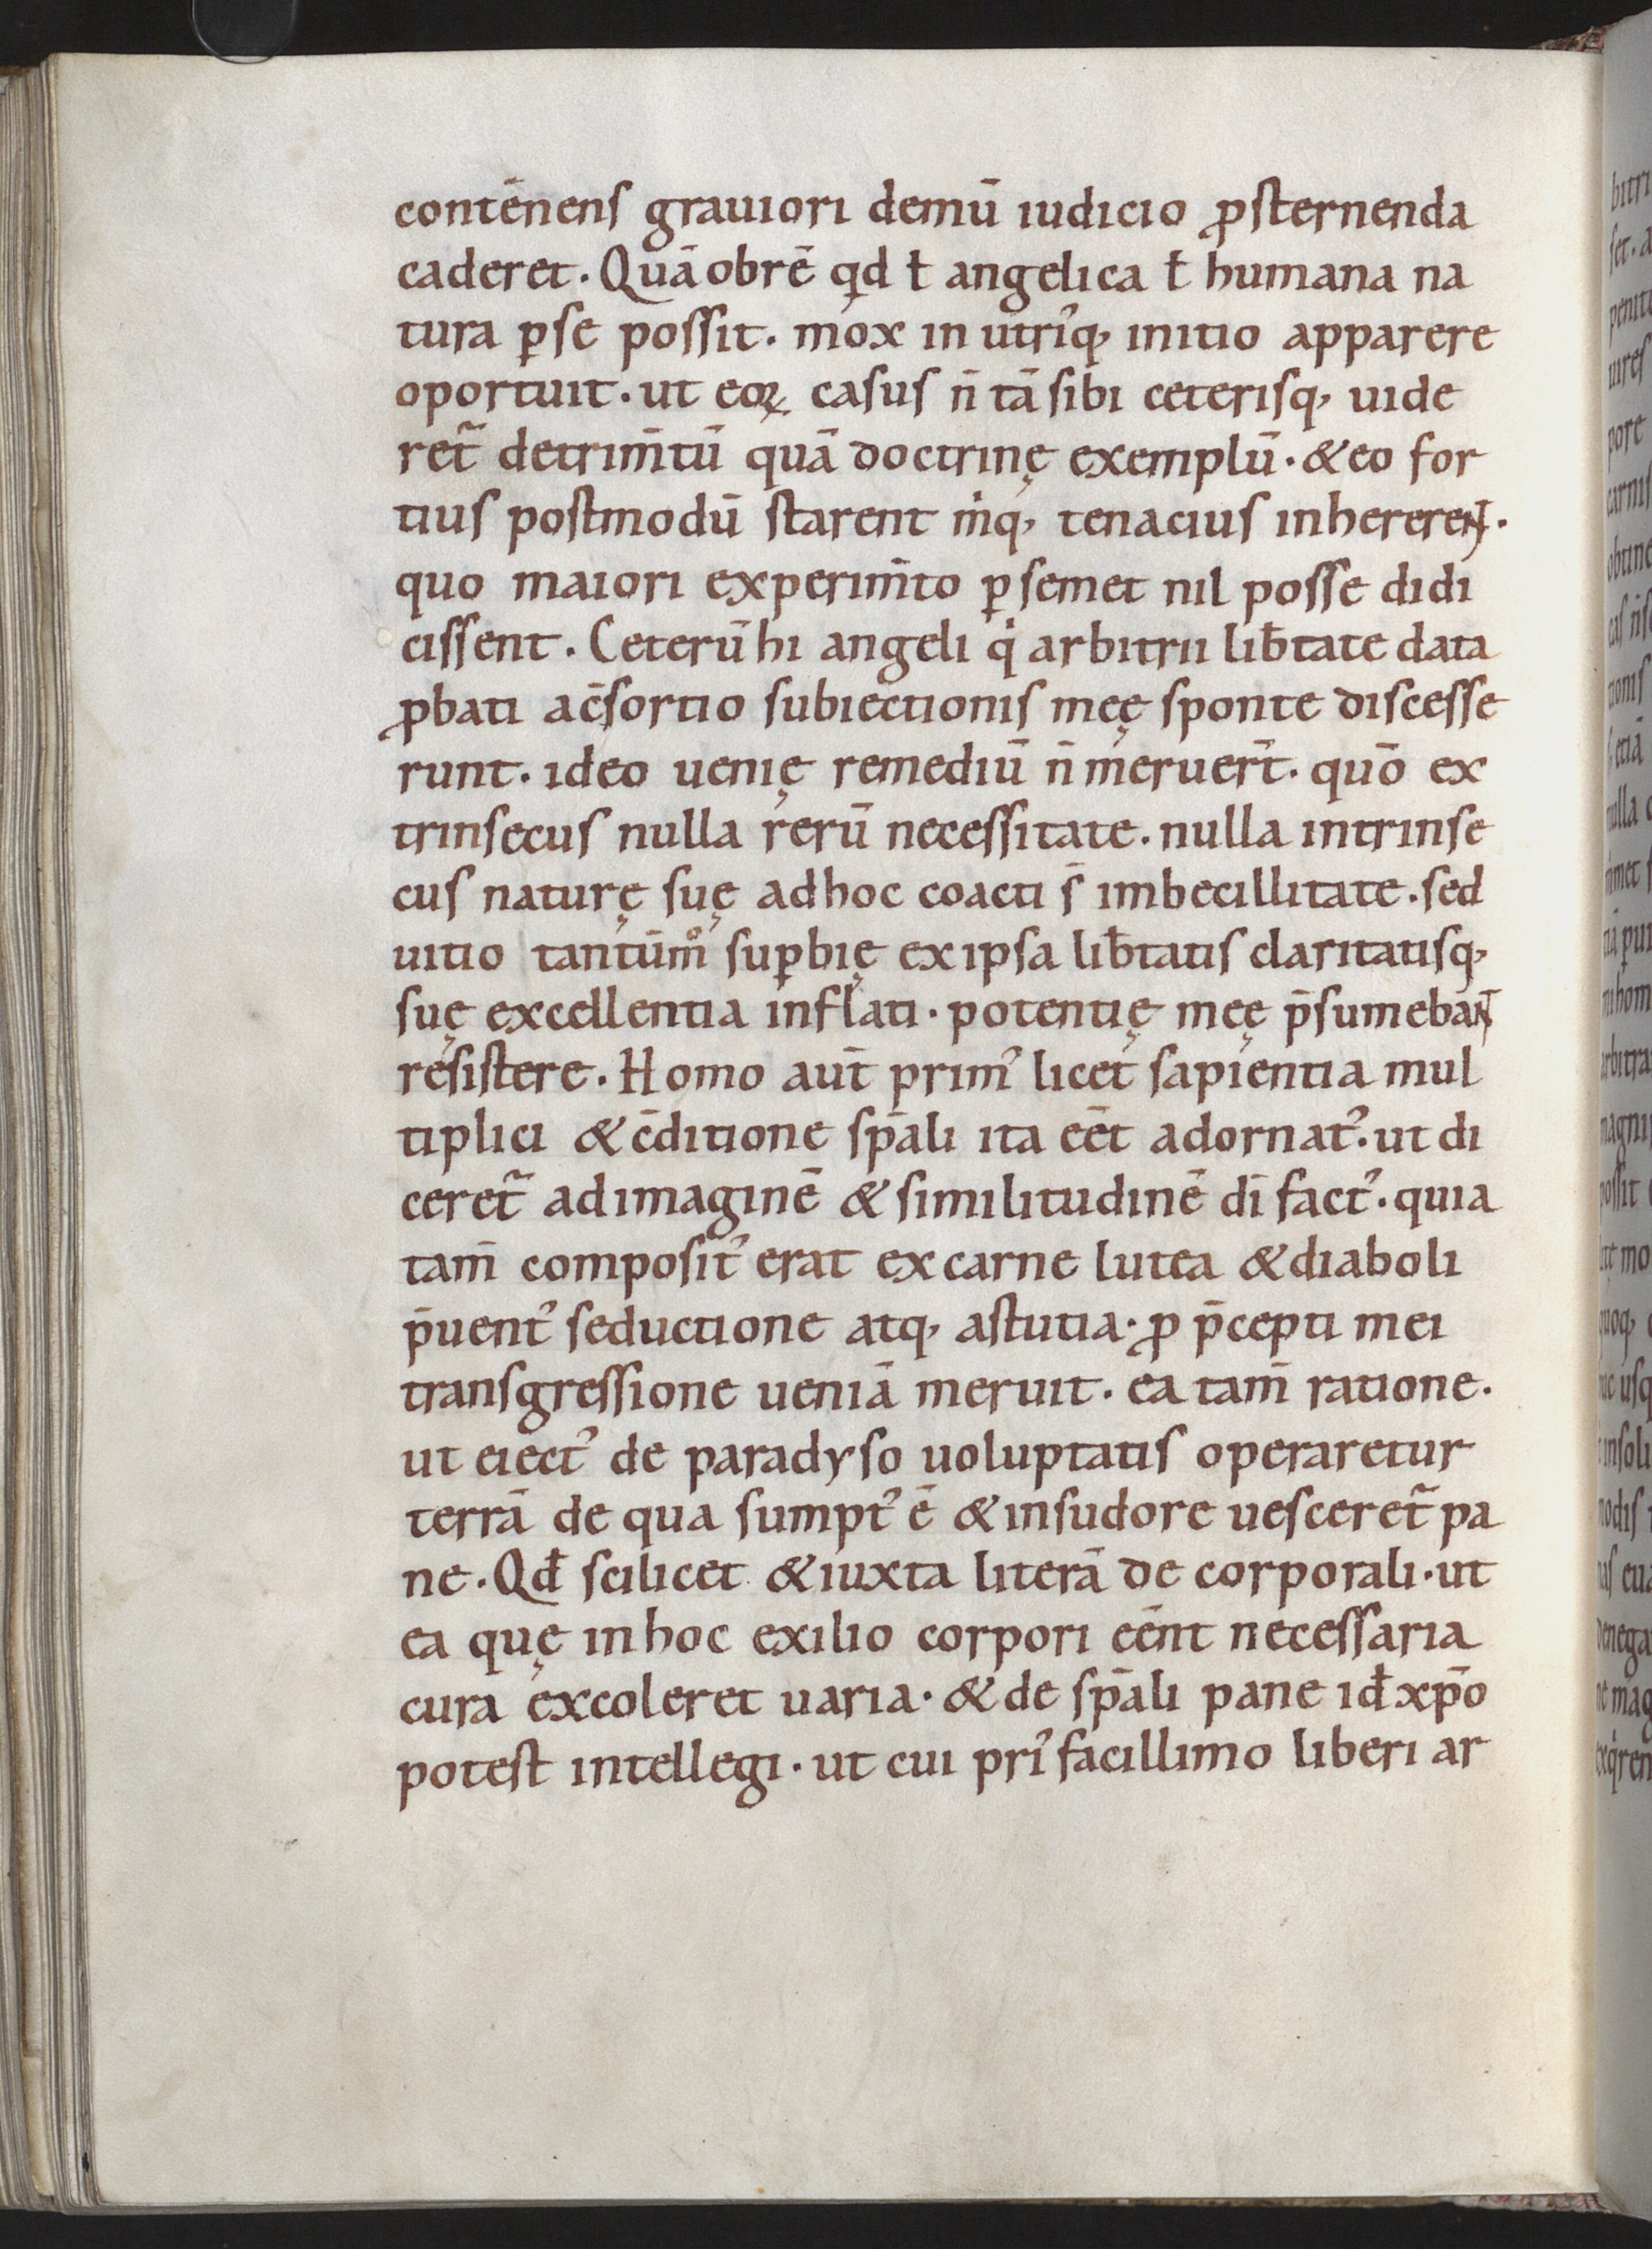 contēnens grauiori demū iudicio ꝓsternenda
caderet. Quā obrē qd ł angelica ł humana na
tura ꝑse possit. mox in utriq; initio apparere
oportuit. ut eoꝝ casus n̄ tā sibi ceterisq; uide
ret̃ detrim̄tū quā doctrinę exemplū. &eo for
tius postmodū starent mq; tenacius inhererent.
quo maiori experim̄to ꝑsemet nil posse didi
cissent. Ceterū hi angeli q arbitrii lib̄tate data
ꝓbati ac̄sortio subiectionis meę sponte discesse
runt. ideo uenię remediū n̄ meruer̄t. quō ex
trinsecus nulla rerū necessitate. nulla intrinse
cus naturę suę adhoc coacti s̄ imbecillitate. sed
uitio tantūm̊ suꝑbię ex ipsa lib̄tatis claritatisq;
suę excellentia inflati. potentię meę p̄sumebant
resistere. Homo aut̄ prim' licet sapientia mul
tiplici &c̄ditione sp̄ali ita eēt adornat'. ut di
ceret̃ adimaginē & similitudinē dī fact'. quia
tam̄ composit' erat ex carne lutea &diaboli
p̄uent' seductione atq; astutia. ꝓ p̄cepti mei
transgressione ueniā meruit. ea tam̄ ratione.
ut eiect' de paradyso uoluptatis operaretur
terrā de qua sumpt' ē &insudore uesceret̃ pa
ne. Qd̄ scilicet &iuxta literā de corporali. ut
ea quę inhoc exilio corpori eēnt necessaria
cura excoleret uaria. &de sp̄ali pane id̄ xp̄o
potest intellegi. ut cui pri' facillimo liberi ar